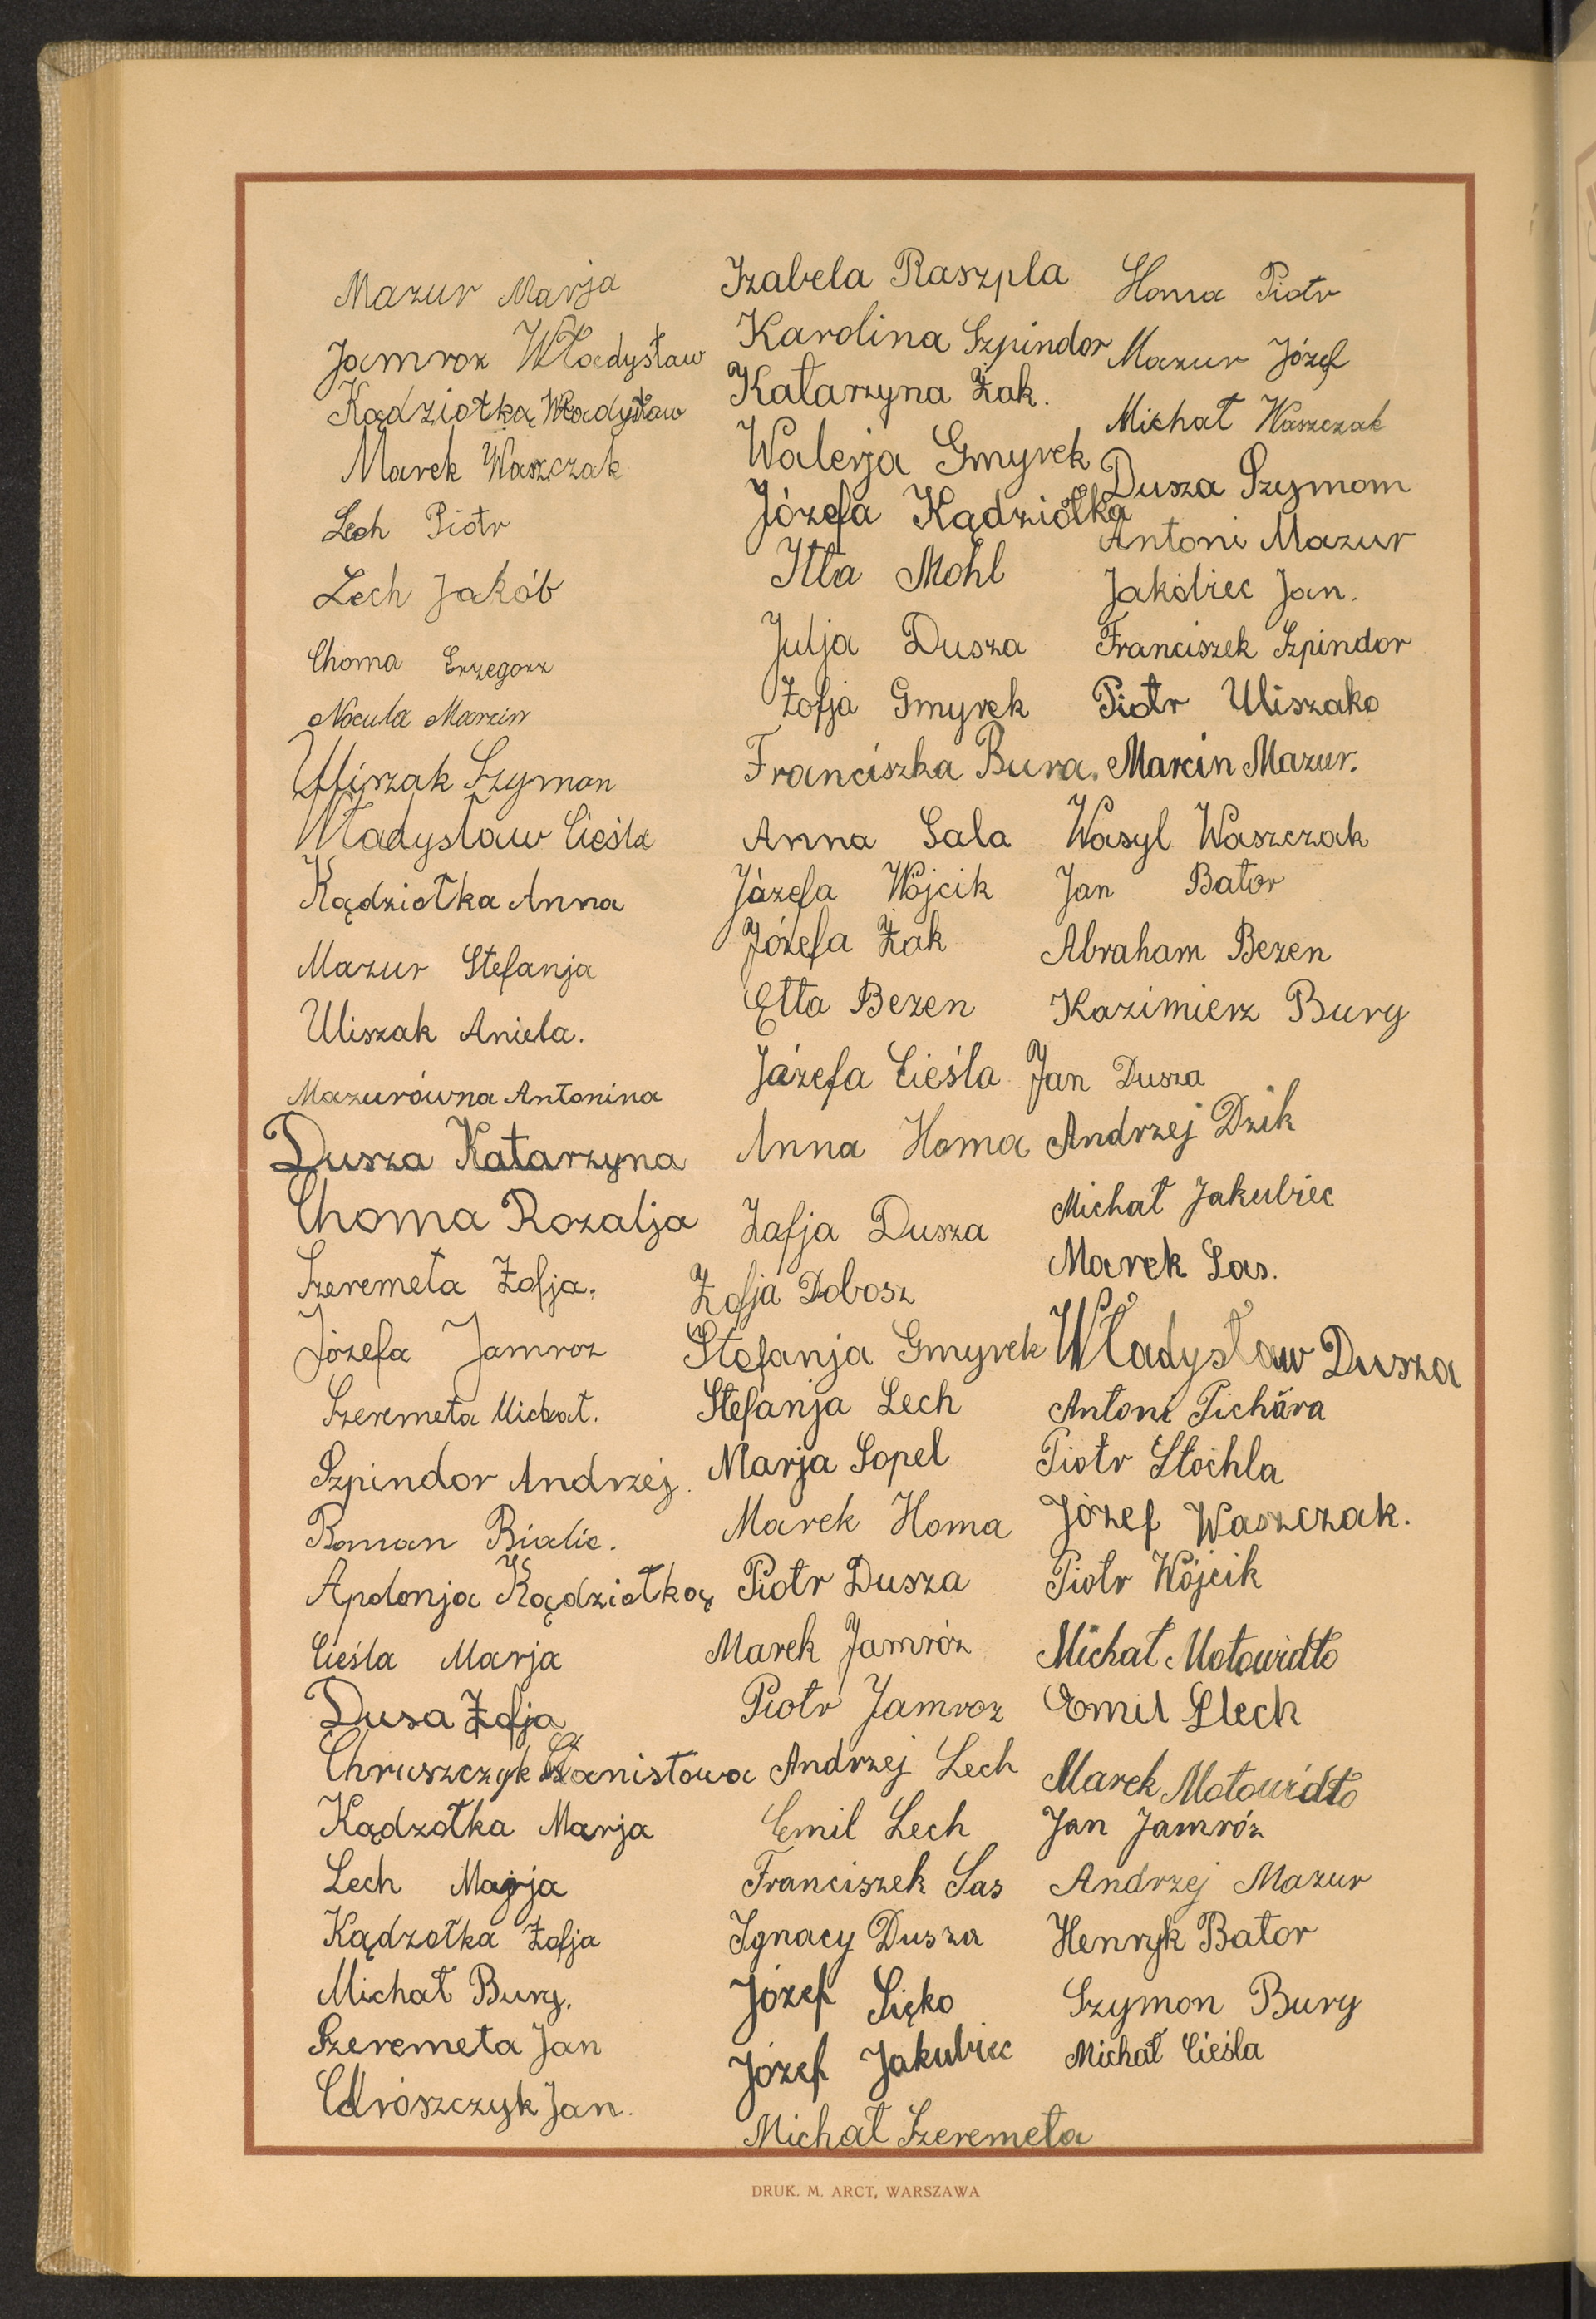 Mazur Marja
Jamroz Władysław
Kądziołka Władysław
Marek Waszczak
Lech Piotr
Lech Jakób
Choma Grzegorz
Nocula Marcin
Uliszak Szymon
Władysław Cieśla
Kądziołka Anna
Mazur Stefanja
Uliszak Aniela.
Mazurówna Antonina
Dusza Katarzyna
Choma Rozalja
Szeremeta Zofja.
Józefa Jamroz
Szeremeta Michał.
Szpindor Andrzej.
Roman Bialic.
Apolonja Kądziołka
Cieśla Marja
Dusa Zofja
Chruszczyk Stanisława
Kądzołka Marja
Lech Marja
Kądzołka Zofja
Michał Bury.
Szeremeta Jan
Chrószczyk Jan.
Izabela Raszpla
Karolina Szpindor
Katarzyna Żak.
Walerja Gmyrek
Józefa Kądziółka
Itla Mohl
Julja Dusza
Zofja Gmyrek
Franciszka Bura.
Anna Sala
Józefa Wójcik
Józefa Żak
Etta Bezen
Józefa Cieśla
Anna Homa
Zofja Dusza
Zofja Dobosz
Stefanja Gmyrek
Stefanja Lech
Marja Sopel
Marek Homa
Piotr Dusza
Marek Jamróz
Piotr Jamroz
Andrzej Lech
Emil Lech
Franciszek Sas
Ignacy Dusza
Józef Sięko
Józef Jakubiec
Michał Szeremeta
Homa Piotr
Mazur Józef
Michał Waszczak
Dusza Szymom
Antoni Mazur
Jakóbiec Jan.
Franciszek Szpindor
Piotr Uliszako
Marcin Mazur.
Wasyl Waszczak
Jan Bator
Abraham Bezen
Kazimierz Bury
Jan Dusza
Andrzej Dzik
Michał Jakubiec
Marek Sas.
Władysław Dusza
Antoni Pichára
Piotr Stochla
Józef Waszczak.
Piotr Wójcik
Michał Motowidło
Emil Slech
Marek Motowidło
Jan Jamróz
Andrzej Mazur
Henryk Bator
Szymon Bury
Michał Cieśla
DRUK. M. ARCT, WARSZAWA